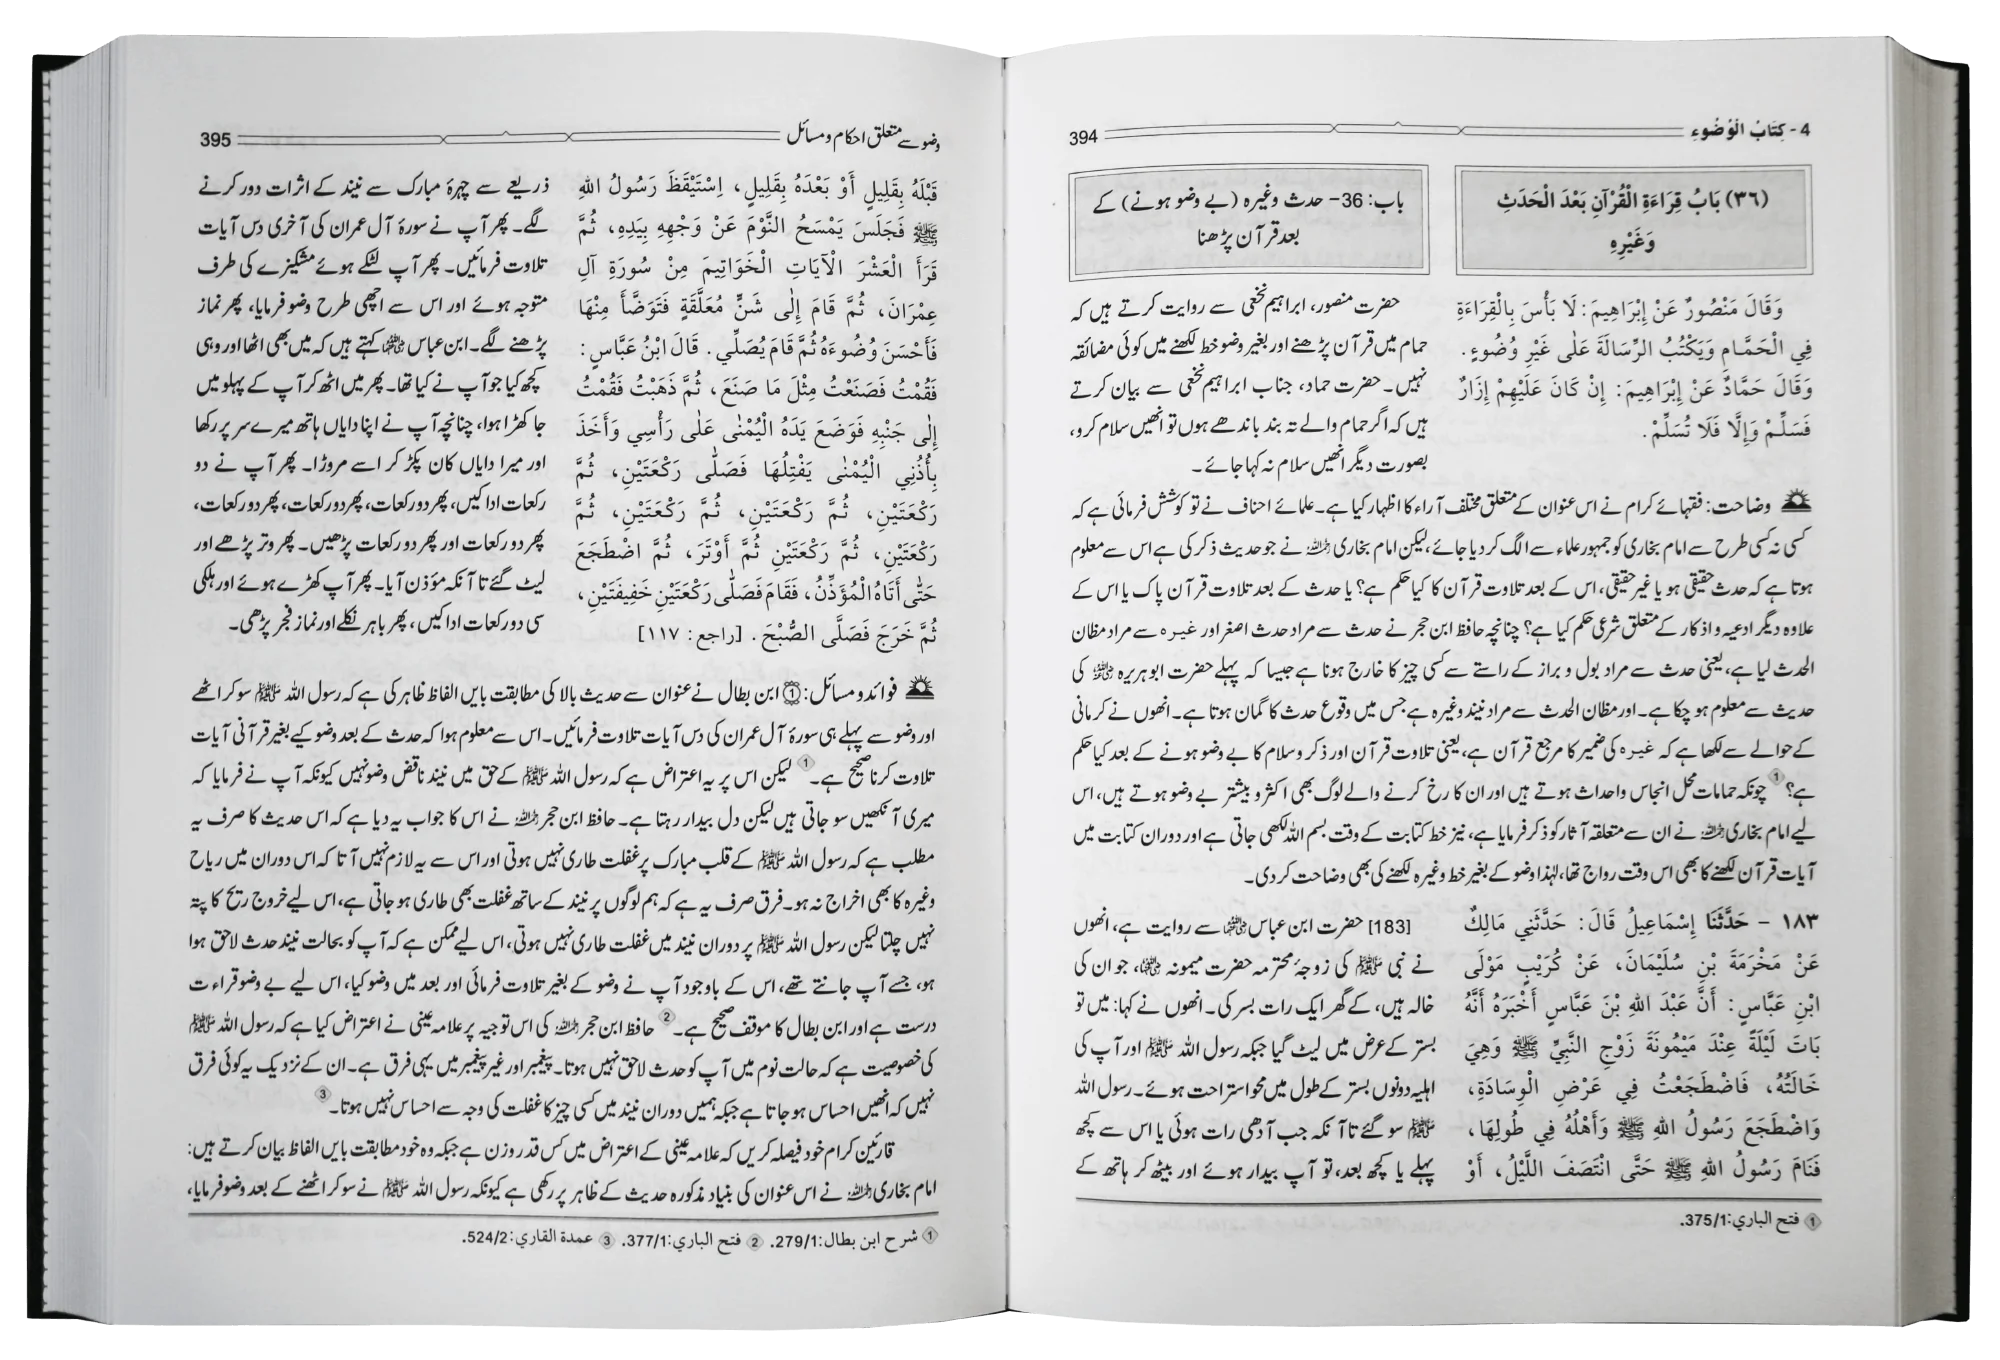 4- كِتَابُ الْوُضُوءِ
394
(٣٦) بَابُ قِرَاءَةِ الْقُرْآنِ بَعْدَ الْحَدَثِ
وَغَيْرِهِ
وَقَالَ مَنْصُورٌ عَنْ إِبْرَاهِيمَ: لَا بَأْسَ بِالْقِرَاءَةِ
فِي الْحَمَّامِ وَيَكْتُبُ الرِّسَالَةَ عَلٰى غَيْرِ وُضُوءٍ.
وَقَالَ حَمَّادٌ عَنْ إِبْرَاهِيمَ: إِنْ كَانَ عَلَيْهِمْ إِزَارٌ
فَسَلِّمْ وَإِلَّا فَلَا تُسَلِّمْ.
باب: 36- حدث وغیرہ (بے وضو ہونے) کے
بعد قرآن پڑھنا
حضرت منصور، ابراہیم نخعی سے روایت کرتے ہیں کہ
حمام میں قرآن پڑھنے اور بغیر وضو خط لکھنے میں کوئی مضائقہ
نہیں۔ حضرت حماد، جناب ابراہیم نخعی سے بیان کرتے
ہیں کہ اگر حمام والے تہ بند باندھے ہوں تو انھیں سلام کرو،
بصورت دیگر انھیں سلام نہ کہا جائے۔
وضاحت: فقہائے کرام نے اس عنوان کے متعلق مختلف آراء کا اظہار کیا ہے۔ علمائے احناف نے تو کوشش فرمائی ہے کہ
کسی نہ کسی طرح سے امام بخاری کو جمہور علماء سے الگ کر دیا جائے، لیکن امام بخاری رحمہ اللہ نے جو حدیث ذکر کی ہے اس سے معلوم
ہوتا ہے کہ حدث حقیقی ہو یا غیر حقیقی، اس کے بعد تلاوت قرآن کا کیا حکم ہے؟ یا حدث کے بعد تلاوت قرآن پاک یا اس کے
علاوہ دیگر ادعیہ و اذکار کے متعلق شرعی حکم کیا ہے؟ چنانچہ حافظ ابن حجر نے حدث سے مراد حدث اصغر اور غیرہ سے مراد مظان
الحدث لیا ہے، یعنی حدث سے مراد بول و براز کے راستے سے کسی چیز کا خارج ہونا ہے جیسا کہ پہلے حضرت ابوہریرہ رضی اللہ عنہ کی
حدیث سے معلوم ہو چکا ہے۔ اور مظان الحدث سے مراد نیند وغیرہ ہے جس میں وقوع حدث کا گمان ہوتا ہے۔ انھوں نے کرمانی
کے حوالے سے لکھا ہے کہ غیرہ کی ضمیر کا مرجع قرآن ہے، یعنی تلاوت قرآن اور ذکر و سلام کا بے وضو ہونے کے بعد کیا حکم
ہے؟ 1 چونکہ حمامات محل انجاس واحداث ہوتے ہیں اور ان کا رخ کرنے والے لوگ بھی اکثر و بیشتر بے وضو ہوتے ہیں، اس
لیے امام بخاری رحمہ اللہ نے ان سے متعلقہ آثار کو ذکر فرمایا ہے، نیز خط کتابت کے وقت بسم اللہ لکھی جاتی ہے اور دوران کتابت میں
آیات قرآن لکھنے کا بھی اس وقت رواج تھا، لہٰذا وضو کے بغیر خط وغیرہ لکھنے کی بھی وضاحت کر دی۔
١٨٣ - حَدَّثَنَا إِسْمَاعِيلُ قَالَ: حَدَّثَنِي مَالِكٌ
عَنْ مَخْرَمَةَ بْنِ سُلَيْمَانَ، عَنْ كُرَيْبٍ مَوْلَى
ابْنِ عَبَّاسٍ: أَنَّ عَبْدَ اللهِ بْنَ عَبَّاسٍ أَخْبَرَهُ أَنَّهُ
بَاتَ لَيْلَةً عِنْدَ مَيْمُونَةَ زَوْجِ النَّبِيِّ ﷺ وَهِيَ
خَالَتُهُ، فَاضْطَجَعْتُ فِي عَرْضِ الْوِسَادَةِ،
وَاضْطَجَعَ رَسُولُ اللهِ ﷺ وَأَهْلُهُ فِي طُولِهَا،
فَنَامَ رَسُولُ اللهِ ﷺ حَتَّى انْتَصَفَ اللَّيْلُ، أَوْ
[183] حضرت ابن عباس رضی اللہ عنہما سے روایت ہے، انھوں
نے نبی ﷺ کی زوجۂ محترمہ حضرت میمونہ رضی اللہ عنہا، جو ان کی
خالہ ہیں، کے گھر ایک رات بسر کی۔ انھوں نے کہا: میں تو
بستر کے عرض میں لیٹ گیا جبکہ رسول اللہ ﷺ اور آپ کی
اہلیہ دونوں بستر کے طول میں محو استراحت ہوئے۔ رسول اللہ
ﷺ سو گئے تا آنکہ جب آدھی رات ہوئی یا اس سے کچھ
پہلے یا کچھ بعد، تو آپ بیدار ہوئے اور بیٹھ کر ہاتھ کے
1 فتح الباري: 375/1.
وضو سے متعلق احکام و مسائل
395
قَبْلَهُ بِقَلِيلٍ أَوْ بَعْدَهُ بِقَلِيلٍ، اِسْتَيْقَظَ رَسُولُ اللهِ
ﷺ فَجَلَسَ يَمْسَحُ النَّوْمَ عَنْ وَجْهِهِ بِيَدِهِ، ثُمَّ
قَرَأَ الْعَشْرَ الْآيَاتِ الْخَوَاتِيمَ مِنْ سُورَةِ آلِ
عِمْرَانَ، ثُمَّ قَامَ إِلٰى شَنٍّ مُعَلَّقَةٍ فَتَوَضَّأَ مِنْهَا
فَأَحْسَنَ وُضُوءَهُ ثُمَّ قَامَ يُصَلِّي. قَالَ ابْنُ عَبَّاسٍ:
فَقُمْتُ فَصَنَعْتُ مِثْلَ مَا صَنَعَ، ثُمَّ ذَهَبْتُ فَقُمْتُ
إِلٰى جَنْبِهِ فَوَضَعَ يَدَهُ الْيُمْنٰى عَلٰى رَأْسِي وَأَخَذَ
بِأُذُنِي الْيُمْنٰى يَفْتِلُهَا فَصَلّٰى رَكْعَتَيْنِ، ثُمَّ
رَكْعَتَيْنِ، ثُمَّ رَكْعَتَيْنِ، ثُمَّ رَكْعَتَيْنِ، ثُمَّ
رَكْعَتَيْنِ، ثُمَّ رَكْعَتَيْنِ ثُمَّ أَوْتَرَ، ثُمَّ اضْطَجَعَ
حَتّٰى أَتَاهُ الْمُؤَذِّنُ، فَقَامَ فَصَلّٰى رَكْعَتَيْنِ خَفِيفَتَيْنِ،
ثُمَّ خَرَجَ فَصَلَّى الصُّبْحَ. [راجع: ١١٧]
ذریعے سے چہرۂ مبارک سے نیند کے اثرات دور کرنے
لگے۔ پھر آپ نے سورۂ آل عمران کی آخری دس آیات
تلاوت فرمائیں۔ پھر آپ لٹکے ہوئے مشکیزے کی طرف
متوجہ ہوئے اور اس سے اچھی طرح وضو فرمایا، پھر نماز
پڑھنے لگے۔ ابن عباس رضی اللہ عنہما کہتے ہیں کہ میں بھی اٹھا اور وہی
کچھ کیا جو آپ نے کیا تھا۔ پھر میں اٹھ کر آپ کے پہلو میں
جا کھڑا ہوا، چنانچہ آپ نے اپنا دایاں ہاتھ میرے سر پر رکھا
اور میرا دایاں کان پکڑ کر اسے مروڑا۔ پھر آپ نے دو
رکعات ادا کیں، پھر دو رکعات، پھر دو رکعات، پھر دو رکعات،
پھر دو رکعات اور پھر دو رکعات پڑھیں۔ پھر وتر پڑھے اور
لیٹ گئے تا آنکہ مؤذن آیا۔ پھر آپ کھڑے ہوئے اور ہلکی
سی دو رکعات ادا کیں، پھر باہر نکلے اور نماز فجر پڑھی۔
فوائد و مسائل: 1 ابن بطال نے عنوان سے حدیث بالا کی مطابقت بایں الفاظ ظاہر کی ہے کہ رسول اللہ ﷺ سو کر اٹھے
اور وضو سے پہلے ہی سورۂ آل عمران کی دس آیات تلاوت فرمائیں۔ اس سے معلوم ہوا کہ حدث کے بعد وضو کیے بغیر قرآنی آیات
تلاوت کرنا صحیح ہے۔ 1 لیکن اس پر یہ اعتراض ہے کہ رسول اللہ ﷺ کے حق میں نیند ناقض وضو نہیں کیونکہ آپ نے فرمایا کہ
میری آنکھیں سو جاتی ہیں لیکن دل بیدار رہتا ہے۔ حافظ ابن حجر رحمہ اللہ نے اس کا جواب یہ دیا ہے کہ اس حدیث کا صرف یہ
مطلب ہے کہ رسول اللہ ﷺ کے قلب مبارک پر غفلت طاری نہیں ہوتی اور اس سے یہ لازم نہیں آتا کہ اس دوران میں ریاح
وغیرہ کا بھی اخراج نہ ہو۔ فرق صرف یہ ہے کہ ہم لوگوں پر نیند کے ساتھ غفلت بھی طاری ہو جاتی ہے، اس لیے خروج ریح کا پتہ
نہیں چلتا لیکن رسول اللہ ﷺ پر دوران نیند میں غفلت طاری نہیں ہوتی، اس لیے ممکن ہے کہ آپ کو بحالت نیند حدث لاحق ہوا
ہو، جسے آپ جانتے تھے، اس کے باوجود آپ نے وضو کے بغیر تلاوت فرمائی اور بعد میں وضو کیا، اس لیے بے وضو قراءت
درست ہے اور ابن بطال کا موقف صحیح ہے۔ 2 حافظ ابن حجر رحمہ اللہ کی اس توجیہ پر علامہ عینی نے اعتراض کیا ہے کہ رسول اللہ ﷺ
کی خصوصیت ہے کہ حالت نوم میں آپ کو حدث لاحق نہیں ہوتا۔ پیغمبر اور غیر پیغمبر میں یہی فرق ہے۔ ان کے نزدیک یہ کوئی فرق
نہیں کہ انھیں احساس ہو جاتا ہے جبکہ ہمیں دوران نیند میں کسی چیز کا غفلت کی وجہ سے احساس نہیں ہوتا۔ 3
قارئین کرام خود فیصلہ کریں کہ علامہ عینی کے اعتراض میں کس قدر وزن ہے جبکہ وہ خود مطابقت بایں الفاظ بیان کرتے ہیں:
امام بخاری رحمہ اللہ نے اس عنوان کی بنیاد مذکورہ حدیث کے ظاہر پر رکھی ہے کیونکہ رسول اللہ ﷺ نے سو کر اٹھنے کے بعد وضو فرمایا،
1 شرح ابن بطال: 279/1. 2 فتح الباري: 377/1. 3 عمدة القاري: 524/2.